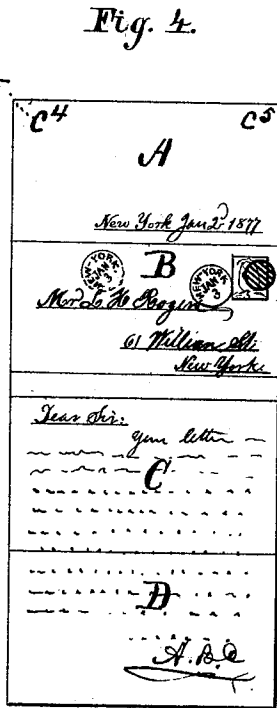 Fig. 4.
C4 C5
A
New York Jan 2d 1877
B
NEW-YORK JAN 3
NEW-YORK JAN 3
Mr. L. H. Rogers
61 William St.
New York.
Dear Sir:
your letter
C
D
A.B.C